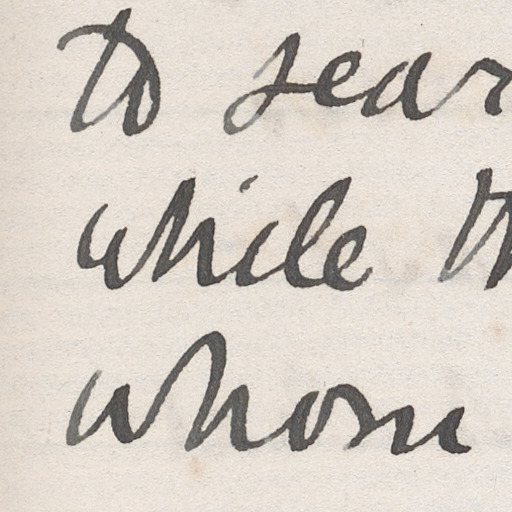 to sear
while th
whom